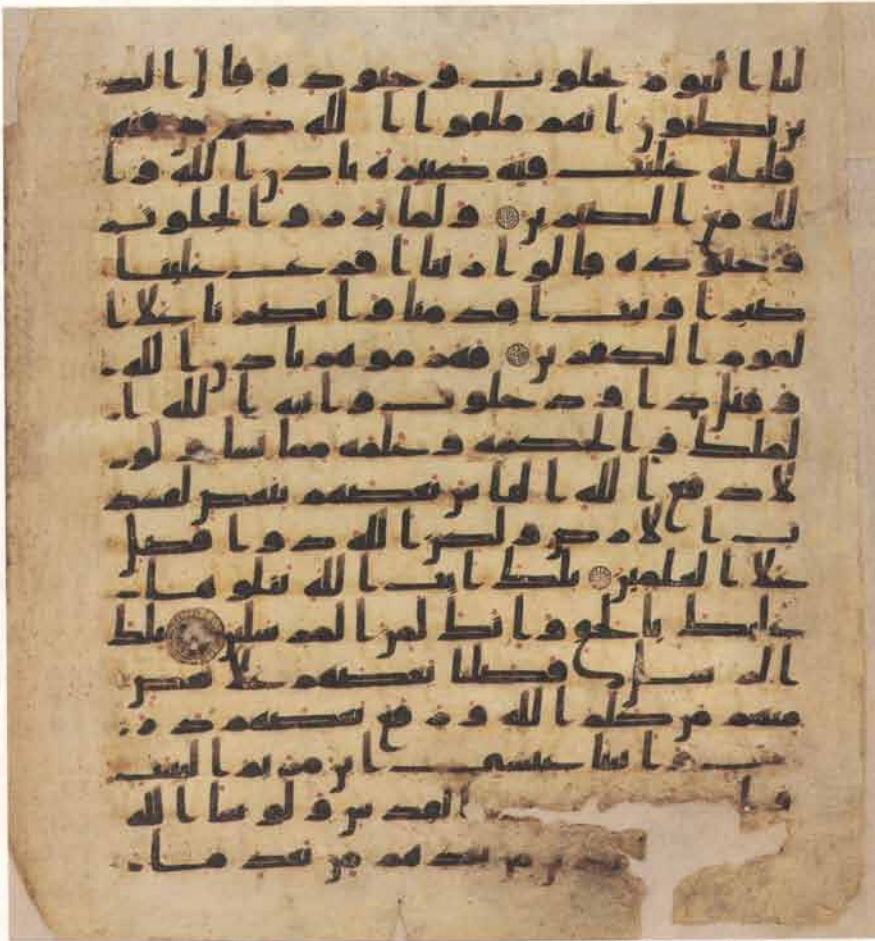 لنا اليوم بجلوت وجنوده قال الذ
ين يظنون انهم ملقوا الله كم من فئة
قليلة غلبت فئة كثيرة باذن الله وا
لله مع الصبرين ولما برزوا لجلوت
وجنوده قالوا ربنا افرغ علينا
صبرا وثبت اقدمنا وانصرنا علا ا
لقوم الكفرين فهزموهم باذن الله
وقتل داود جلوت واتيه الله ا
لملك والحكمة وعلمه مما يشا ولو
لا دفع الله الناس بعضهم ببعض لفسد
ت الارض ولكن الله ذوا فضل
علا العلمين تلك ايت الله نتلوها
عليك بالحق وانك لمن المرسلين تلك
الرسل فضلنا بعضهم علا بعض
منهم من كلم الله ورفع بعضهم در
جت واتينا عيسى ابن مريم البينت
وا القدس ولو شا الله
من بعدهم من بعد ما